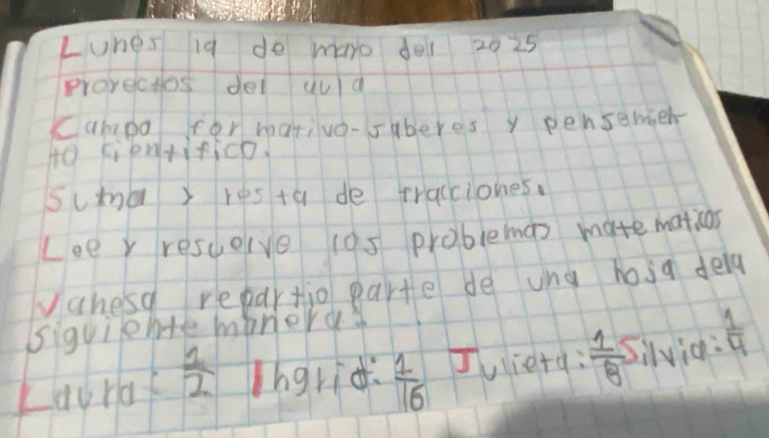 Lunes 19 de mayo del 2025
Proyectos del aula
Campo formativo-saberes y pensamien
to cientifico.
Suma y resta de fracciones.
Lee y resuelve los problemas matematicos
Vanesa repartio parte de una hoja dela
siguiente manera:
Laura: 1/2 Ingrid: 1/16 Julieta: 1/8 Silvia: 1/4